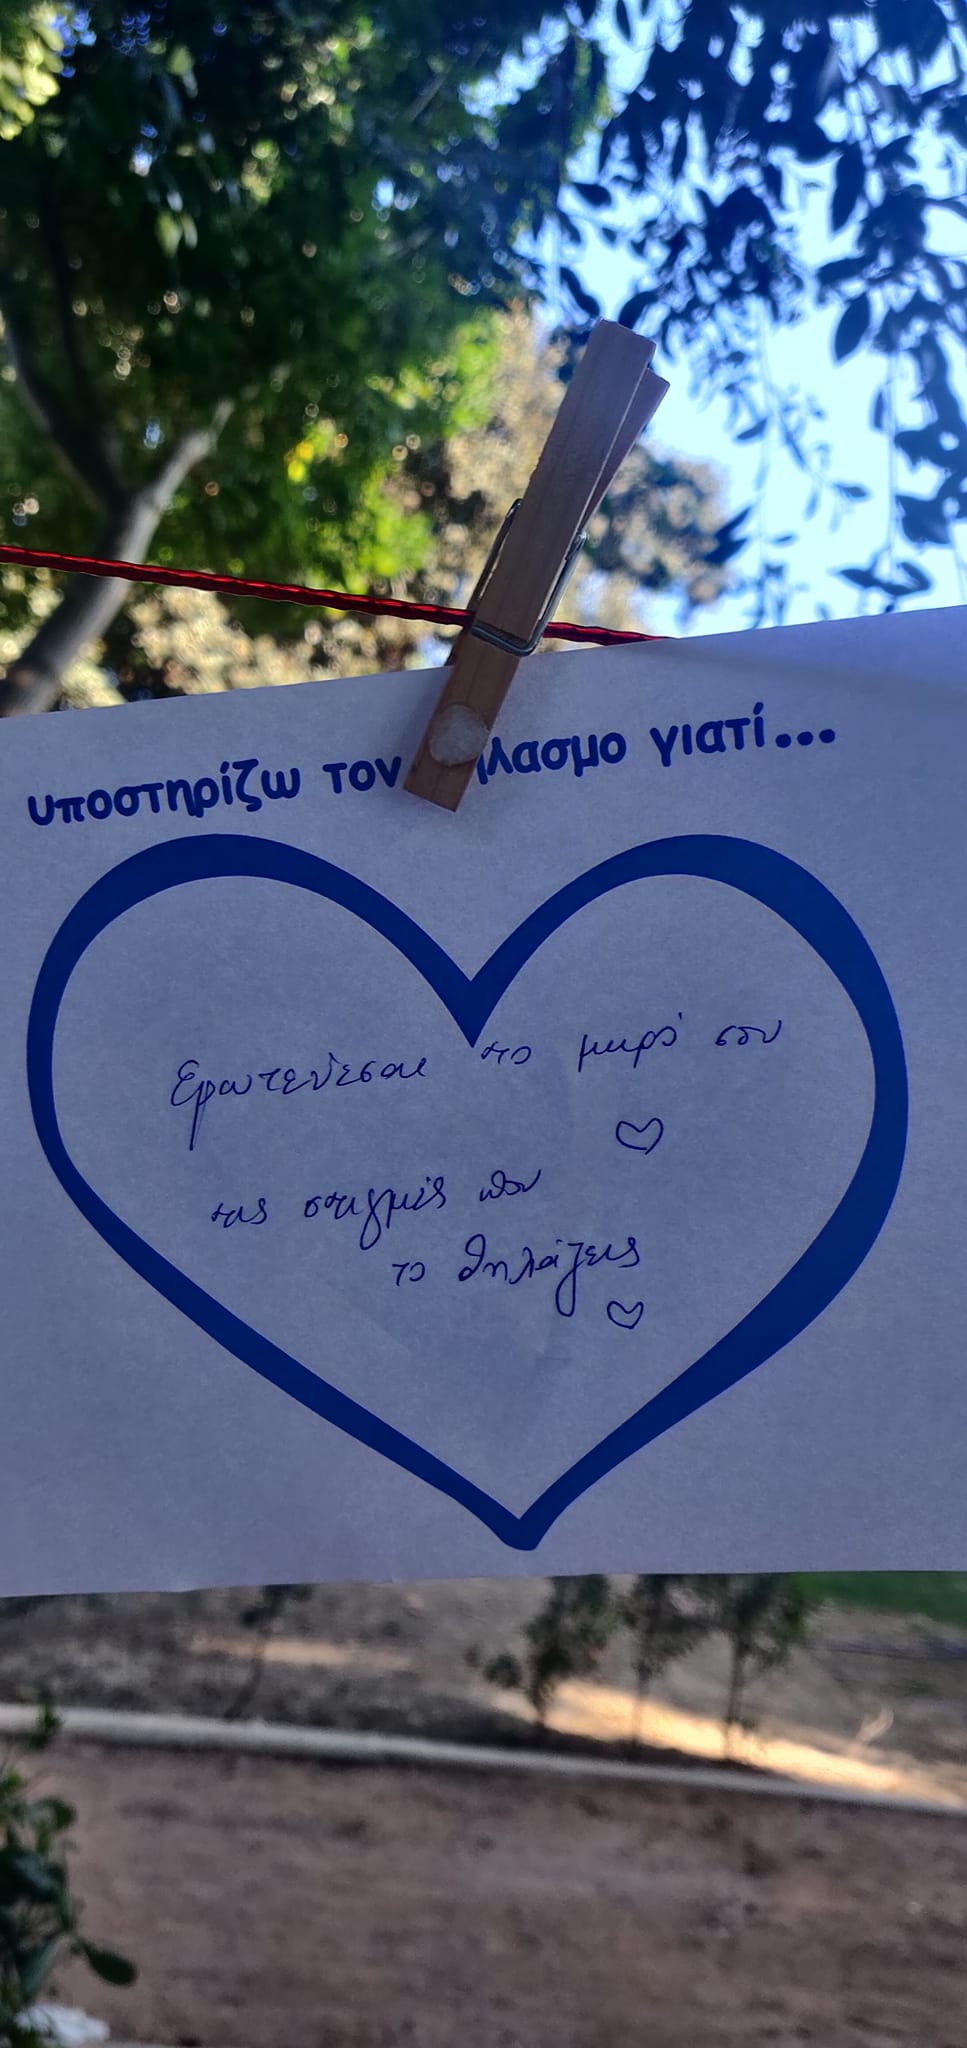 υποστηρίζω τον ηλασμο γιατί...
Ερωτεύεσαι το μικρό σου
τις στιγμές που
το θηλάζεις